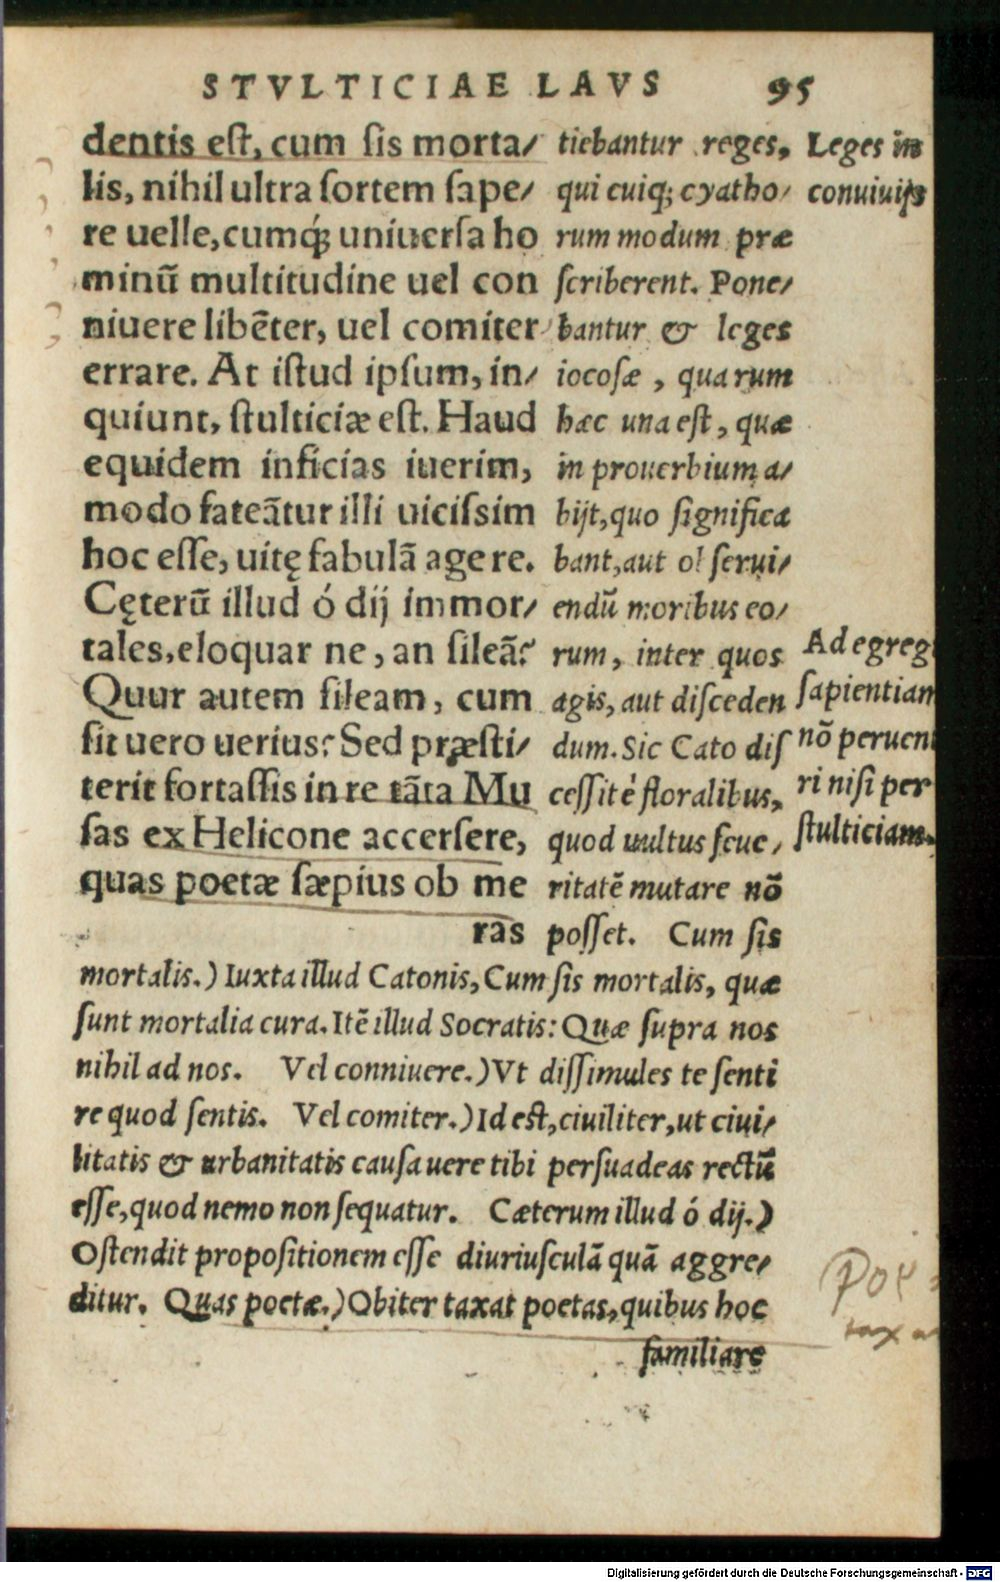 STVLTICIAE LAVS 95
dentis eſt, cum ſis morta/
lis, nihil ultra ſortem ſape/
re uelle, cumq́; uniuerſa ho
minũ multitudine uel con
niuere libẽter, uel comiter
errare. At iſtud ipſum, in/
quiunt, ſtulticiæ eſt. Haud
equidem inficias iuerim,
modo fateãtur illi uiciſsim
hoc eſſe, uitę fabulã agere.
Cęterũ illud ó dij immor/
tales, eloquar ne, an ſileã?
Quur autem ſileam, cum
ſit uero uerius? Sed præſti/
terit fortaſſis in re tãta Mu
ſas ex Helicone accerſere,
quas poetæ ſæpius ob me
ras
tiebantur reges,
qui cuiq; cyatho/
rum modum præ
ſcriberent. Pone/
bantur & leges
iocoſæ, quarum
hæc una eſt, quæ
in prouerbium a/
bijt, quo ſignifica
bant, aut obſerui/
endũ moribus eo/
rum, inter quos
agis, aut diſceden
dum. Sic Cato diſ
ceſſit è floralibus,
quod uultus ſeue/
ritatẽ mutare nõ
poſſet. Cum ſis
Leges in
conuiuijs
Ad egreg
ſapientiam
nõ peruen
ri niſi per
ſtulticiam.
mortalis.) Iuxta illud Catonis, Cum ſis mortalis, quæ
ſunt mortalia cura. Itẽ illud Socratis: Quæ ſupra nos
nihil ad nos. Vel conniuere.) Vt diſſimules te ſenti
re quod ſentis. Vel comiter.) Id eſt, ciuiliter, ut ciui/
litatis & urbanitatis cauſa uere tibi perſuadeas rectũ
eſſe, quod nemo non ſequatur. Cæterum illud ó dij.)
Oſtendit propoſitionem eſſe diuriuſculã quã aggre/
ditur. Quas poetæ.) Obiter taxat poetas, quibus hoc
familiare
Digitalisierung gefördert durch die Deutsche Forschungsgemeinschaft - DFG